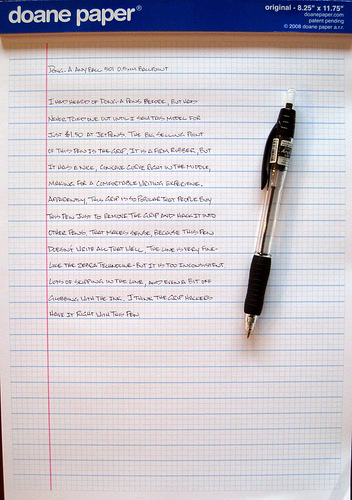 doane paper®
original - 8.25" x 11.75"
doanepaper.com
patent pending
© 2008 doane paper a.r.r.
Dong-A AnyBall 501 0.5mm Ballpoint
I had heard of Dong-A pens before, but had
never tried one out until I saw this model for
just $1.50 at JetPens. The big selling point
of this pen is the grip. It is a firm rubber, but
it has a nice, concave curve right in the middle,
making for a comfortable writing experience.
Apparently, this grip is so popular that people buy
this pen just to remove the grip and hack it into
other pens. That makes sense, because this pen
doesn't write all that well. The line is very fine-
like the Zebra Techoline-but it is too inconsistent.
Lots of skipping in the line, and even a bit of
globbing with the ink. I think the grip hackers
have it right with this pen.